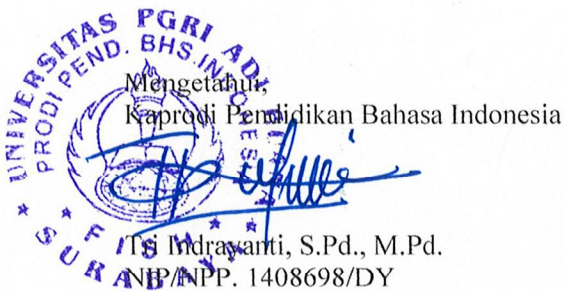 UNIVERSITAS PGRI ADI
PRODI PEND. BHS.INDONESIA
Mengetahui,
Kaprodi Pendidikan Bahasa Indonesia
Tri Indrayanti, S.Pd., M.Pd.
NIP/NPP. 1408698/DY
SURABAYA